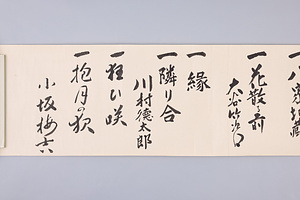 一花散る前
大谷竹次郎
一縁
一隣り合
川村徳太郎
一狂ひ咲
一抱月の夜
小坂梅吉